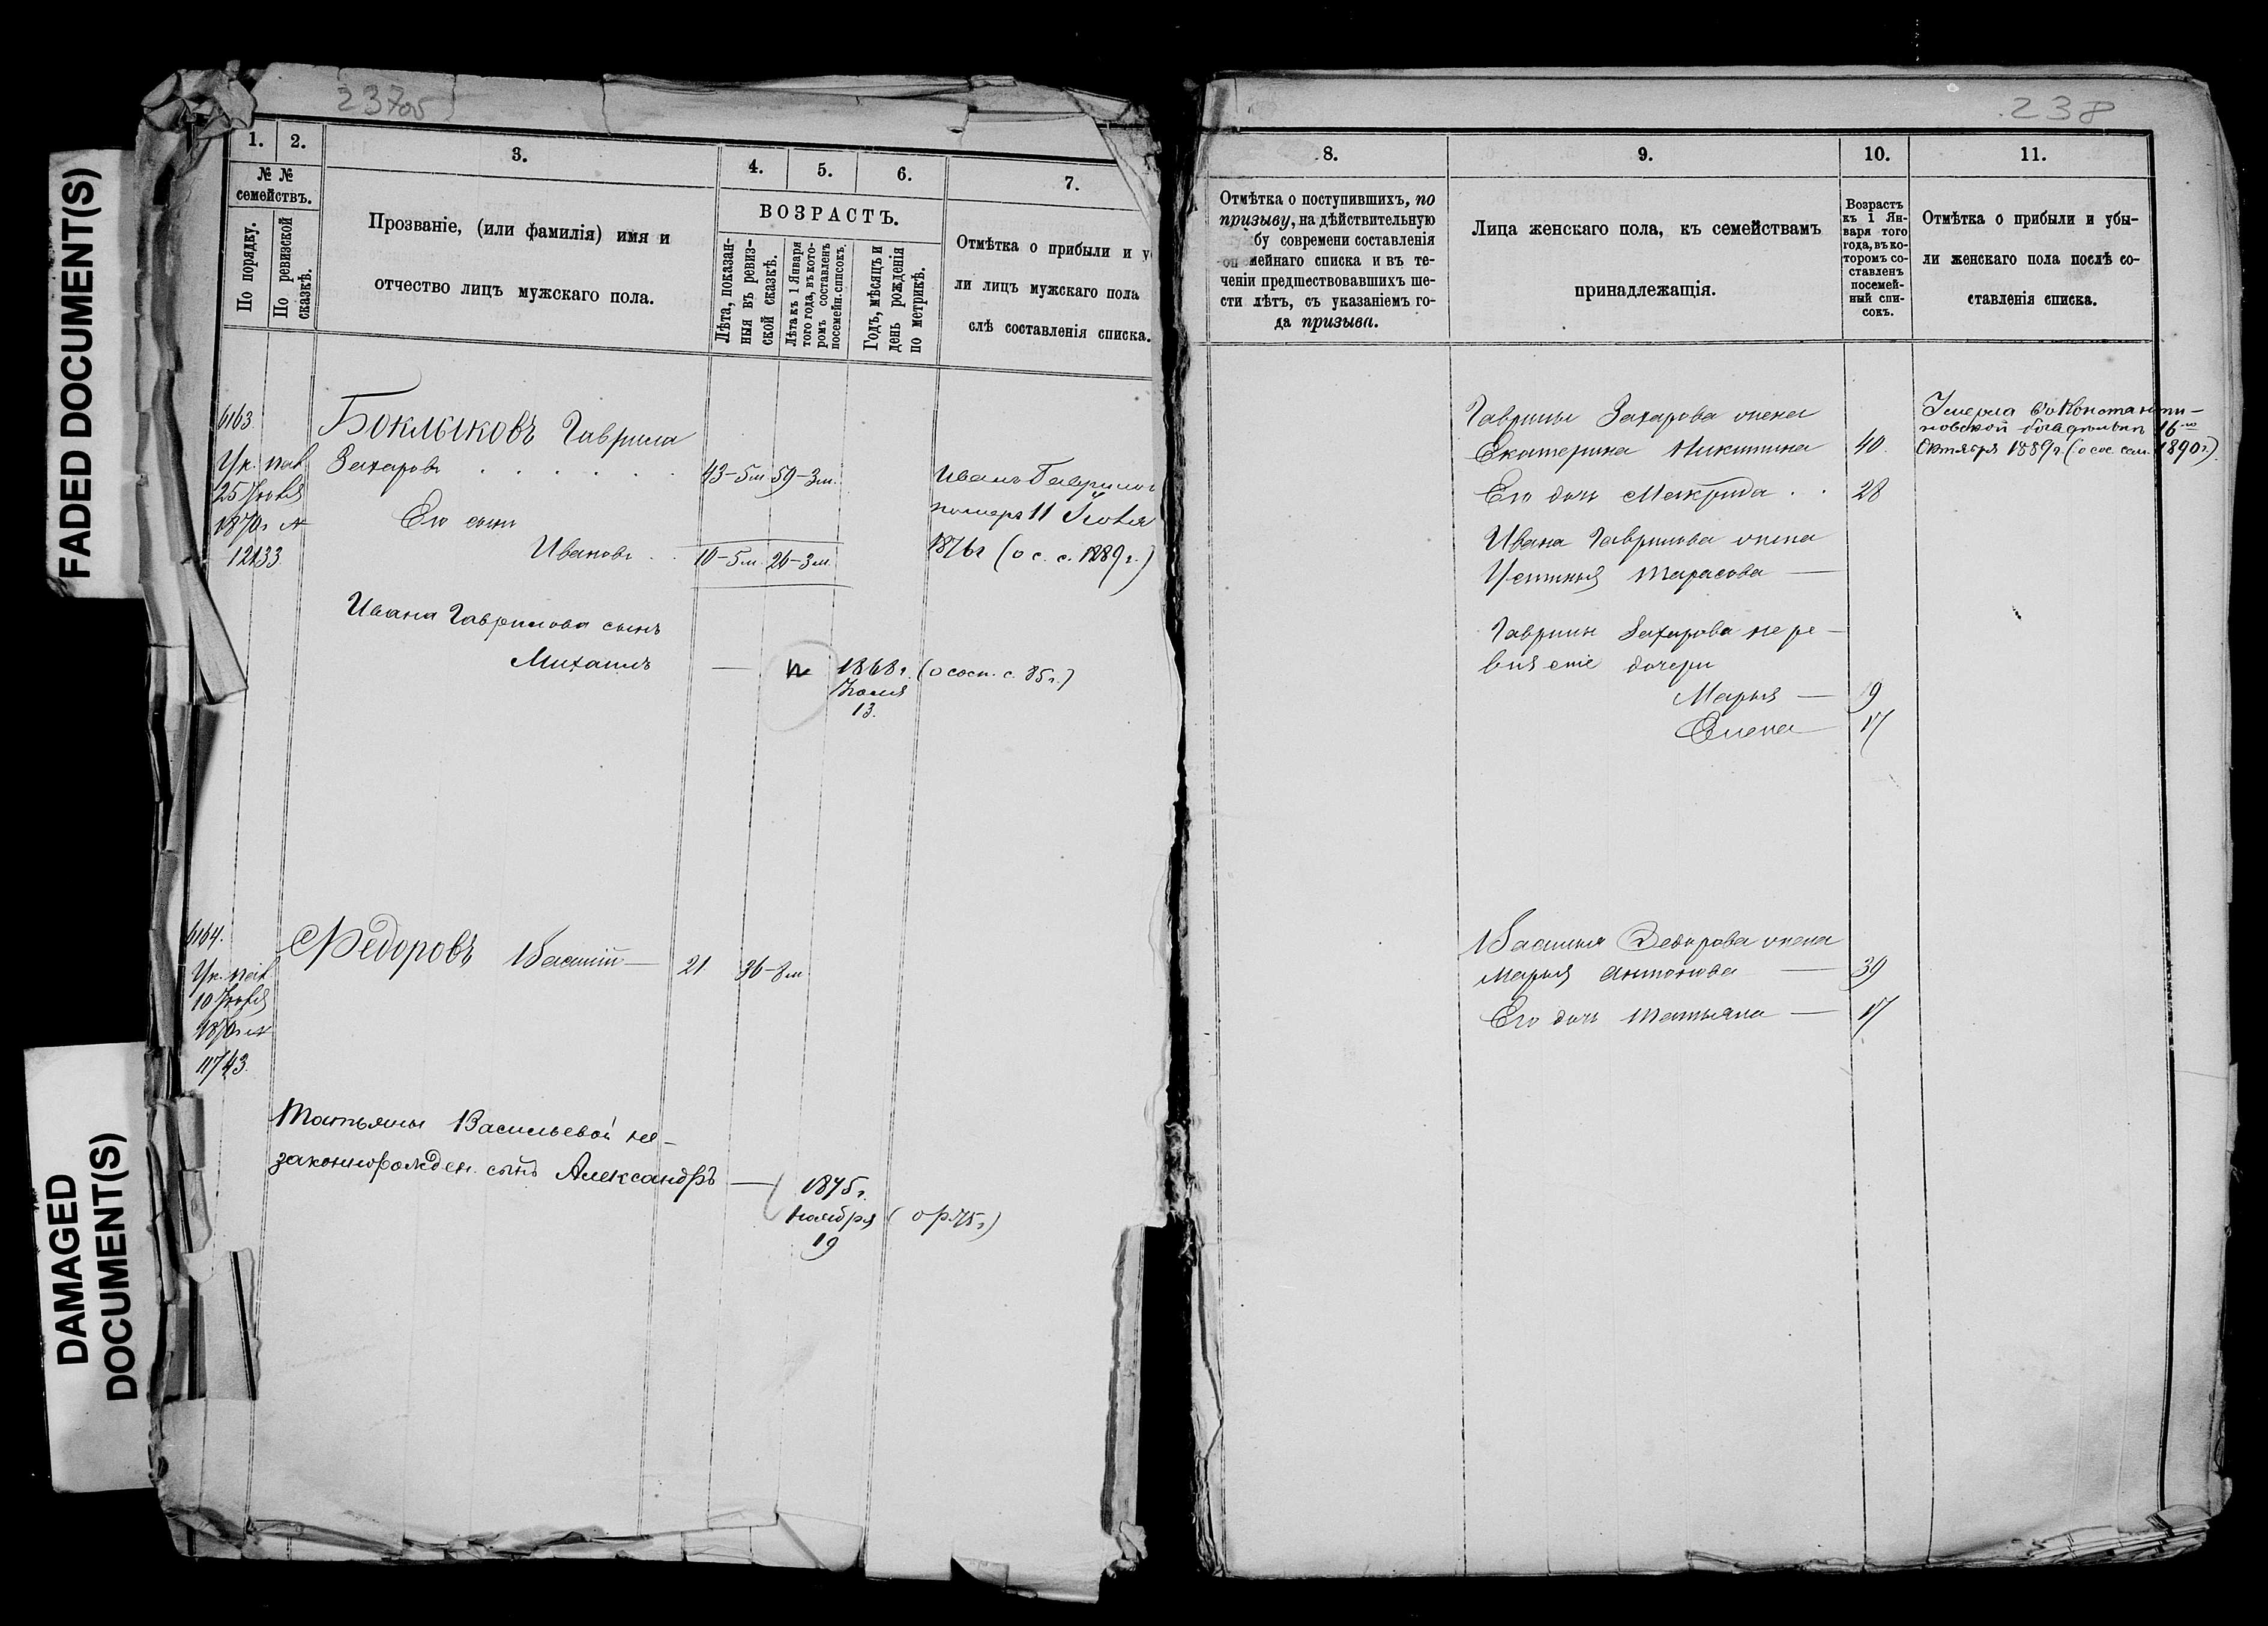 FADED DOCUMENT(S)
DAMAGED
DOCUMENT(S)
237об
1.
2.
3.
4.
5.
6.
7.
№ №
семействъ.
По порядку.
По ревизской
сказкѣ.
Прозваніе, (или фамилія) имя и
отчество лицъ мужскаго пола.
ВОЗРАСТЪ.
Лѣта, показан-
ныя въ ревиз-
ской сказкѣ.
Лѣта къ 1 Января
того года, въ кото-
ромъ составленъ
посемейн. списокъ.
Годъ, мѣсяцъ и
день рожденія
по метрикѣ.
Отмѣтка о прибыли и у
ли лицъ мужскаго пола
слѣ составленія списка.
6163.
Ук. пал.
25 Іюля
1870 г. №
12133.
Боклыковъ Гаврила
Захаровъ
43-5м. 59-3м.
Его сынъ
Ивановъ
10-5м. 26-3м.
Иванъ Гаврилов
померъ 11 Іюля
1876г (о с. с. 1889 г.)
Ивана Гаврилова сынъ
Михаилъ — 1868 г. (о сосп. с. 85 г.)
Іюля
13.
6164.
Ук. пал.
10 Іюля
1870 г. №
11743.
Федоровъ Василій — 21 36-3м
Татьяны Васильевой не-
законнорожден. сынъ Александръ — 1875 г.
Ноября ( о р. 75 г.)
19
238
8.
9.
10.
11.
Отмѣтка о поступившихъ, по
призыву, на дѣйствительную
бу современи составленія
мейнаго списка и въ те-
ченіи предшествовавшихъ ше-
сти лѣтъ, съ указаніемъ го-
да призыва.
Лица женскаго пола, къ семействамъ
принадлежащія.
Возрастъ
къ 1 Ян-
варя того
года, въ ко-
торомъ со-
ставленъ
посемей-
ный спи-
сокъ.
Отмѣтка о прибыли и убы-
ли женскаго пола послѣ со-
ставленія списка.
Гаврилы Захарова жена
Екатерина Никитина 40.
Умерла въ Константи-
новской богадѣльнѣ 16го
Октября 1889 г. (о сос. сем. 1890 г.)
Его дочь Макрида 28
Ивана Гаврилова жена
Устинья Тарасова —
Гаврилы Захарова не ре-
визскіе дочери
Марья — 19
Елена — 17
Василья Федорова жена
Марья Антонова — 39
Его дочь Татьяна — 17